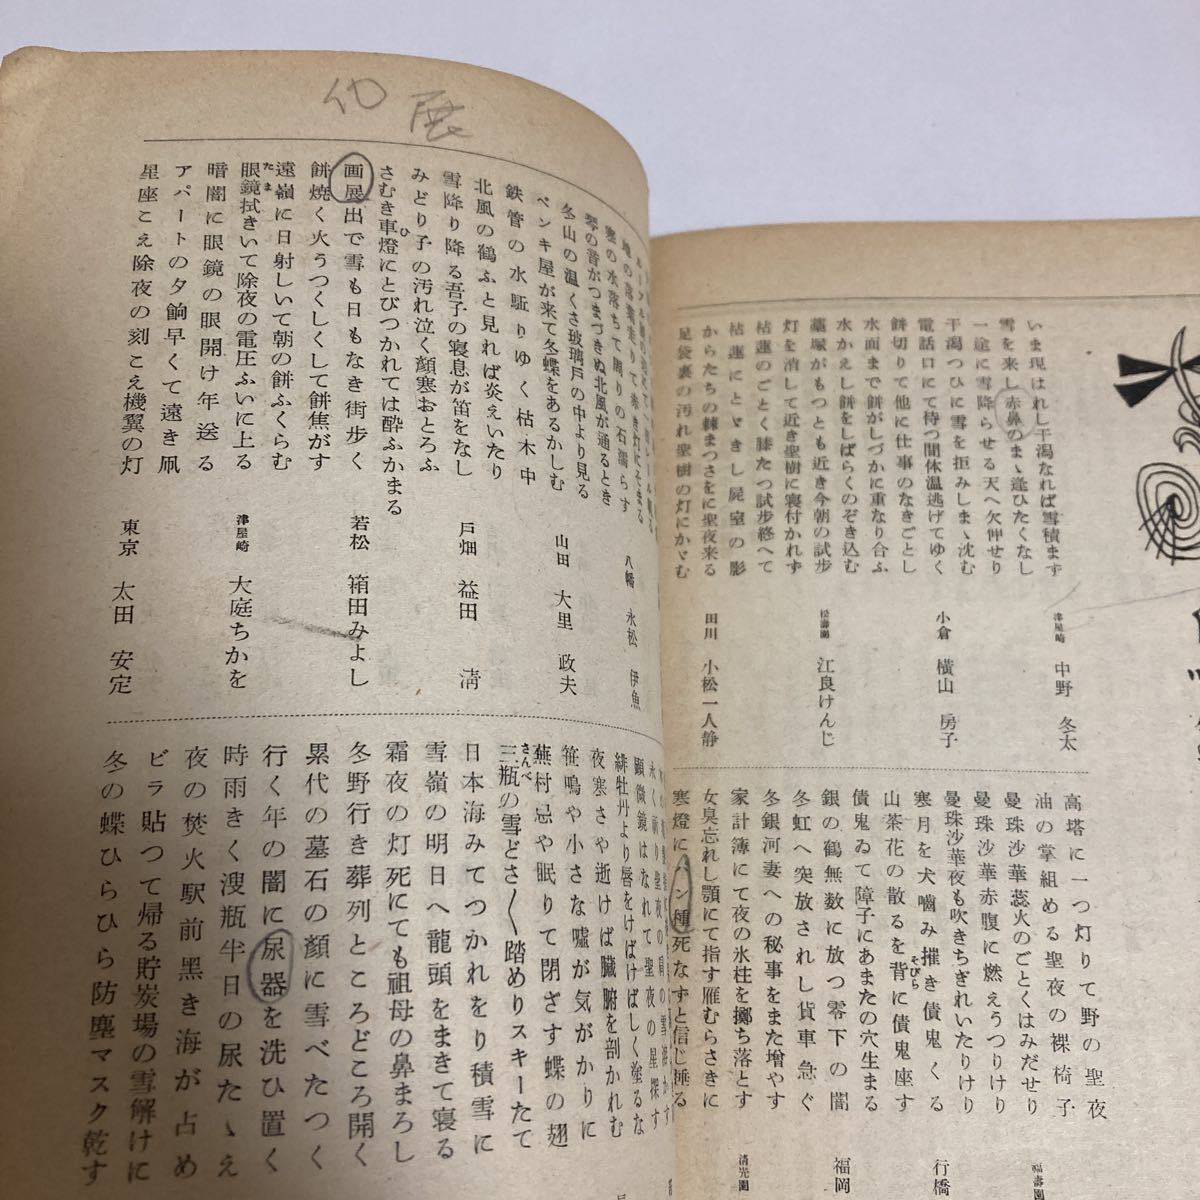 いま現はれし干潟なれば雪積ます
雪を来し赤鼻のまゝ逢ひたくなし
一途に雪降らせる天へ欠伸せり
津屋崎 中野 冬太
干潟つひに雪を拒みしまゝ沈む
電話口にて待つ間体温逃げてゆく
餅切りて他に仕事のなきごとし
小倉 横山 房子
水面まで餅がしづかに重なり合ふ
水かえし餅をしばらくのぞき込む
墓塚がもつとも近き今朝の試歩
松壽園 江良けんじ
灯を消して近き聖樹に寝付かれず
枯蓮のごとく膝たつ試歩終へて
枯蓮にとゞきし屍室の影
からたちの棘まつさをに聖夜来る
足袋裏の汚れ聖樹の灯にかゞむ
田川 小松一人静
高塔に一つ灯りて野の聖夜
油の掌組める聖夜の裸椅子
福壽園
曼珠沙華蕊火のごとくはみだせり
曼珠沙華赤腹に燃えうつりけり
曼珠沙華夜も吹きちぎれいたりけり
寒月を犬噛み摧き債鬼くる
行橋
山茶花の散るを背に債鬼座す
そびら
債鬼ゐて障子にあまたの穴生まる
銀の鶴無数に放つ零下の闇
福岡
冬虹へ突放されし貨車急ぐ
冬銀河妻への秘事をまた増やす
家計簿にて夜の氷柱を擲ち落とす
清光園
女臭忘れし顎にて指す雁むらさきに
寒燈にパン種死なずと信じ捶る
代 展
地の落葉走りて歩き灯にそまる
寒の水落ちて周りの石濡らす
八幡 永松 伊魚
琴の音がつまづきぬ北風が通るとき
冬山の温くさ玻璃戸の中より見る
ペンキ屋が来て冬蝶をあるかしむ
山田 大里 政夫
鉄管の水駈りゆく枯木中
北風の鶴ふと見れば炎えいたり
雪降り降る吾子の寝息が笛をなし
戸畑 益田 清
みどり子の汚れ泣く顔寒おとろふ
さむき車燈にとびつかれては酔ふかまる
ひ
画展出で雪も日もなき街歩く
若松 箱田みよし
餅焼く火うつくしくして餅焦がす
遠嶺に日射しいて朝の餅ふくらむ
眼鏡拭きいて除夜の電圧ふいに上る
たま
津屋崎 大庭ちかを
暗闇に眼鏡の眼開け年送る
アパートの夕餉早くて遠き凧
星座こえ除夜の刻こえ機翼の灯
東京 太田 安定
顕微鏡はなれて聖夜の星探す
緋牡丹より唇をけばけばしく塗るな
夜寒さや逝けば臓腑を剖かれむ
笹鳴や小さな嘘が気がかりに
蕪村忌や眠りて閉ざす蝶の翅
三瓶の雪どさ〳〵踏めりスキーたて
さんべ
日本海みてつかれをり積雪に
雪嶺の明日へ龍頭をまきて寝る
霜夜の灯死にても祖母の鼻まろし
冬野行き葬列ところどころ開く
累代の墓石の顔に雪べたつく
行く年の闇に尿器を洗ひ置く
時雨きく溲瓶半日の尿たゝえ
夜の焚火駅前黒き海が占め
ビラ貼つて帰る貯炭場の雪解けに
冬の蝶ひらひら防塵マスク乾す